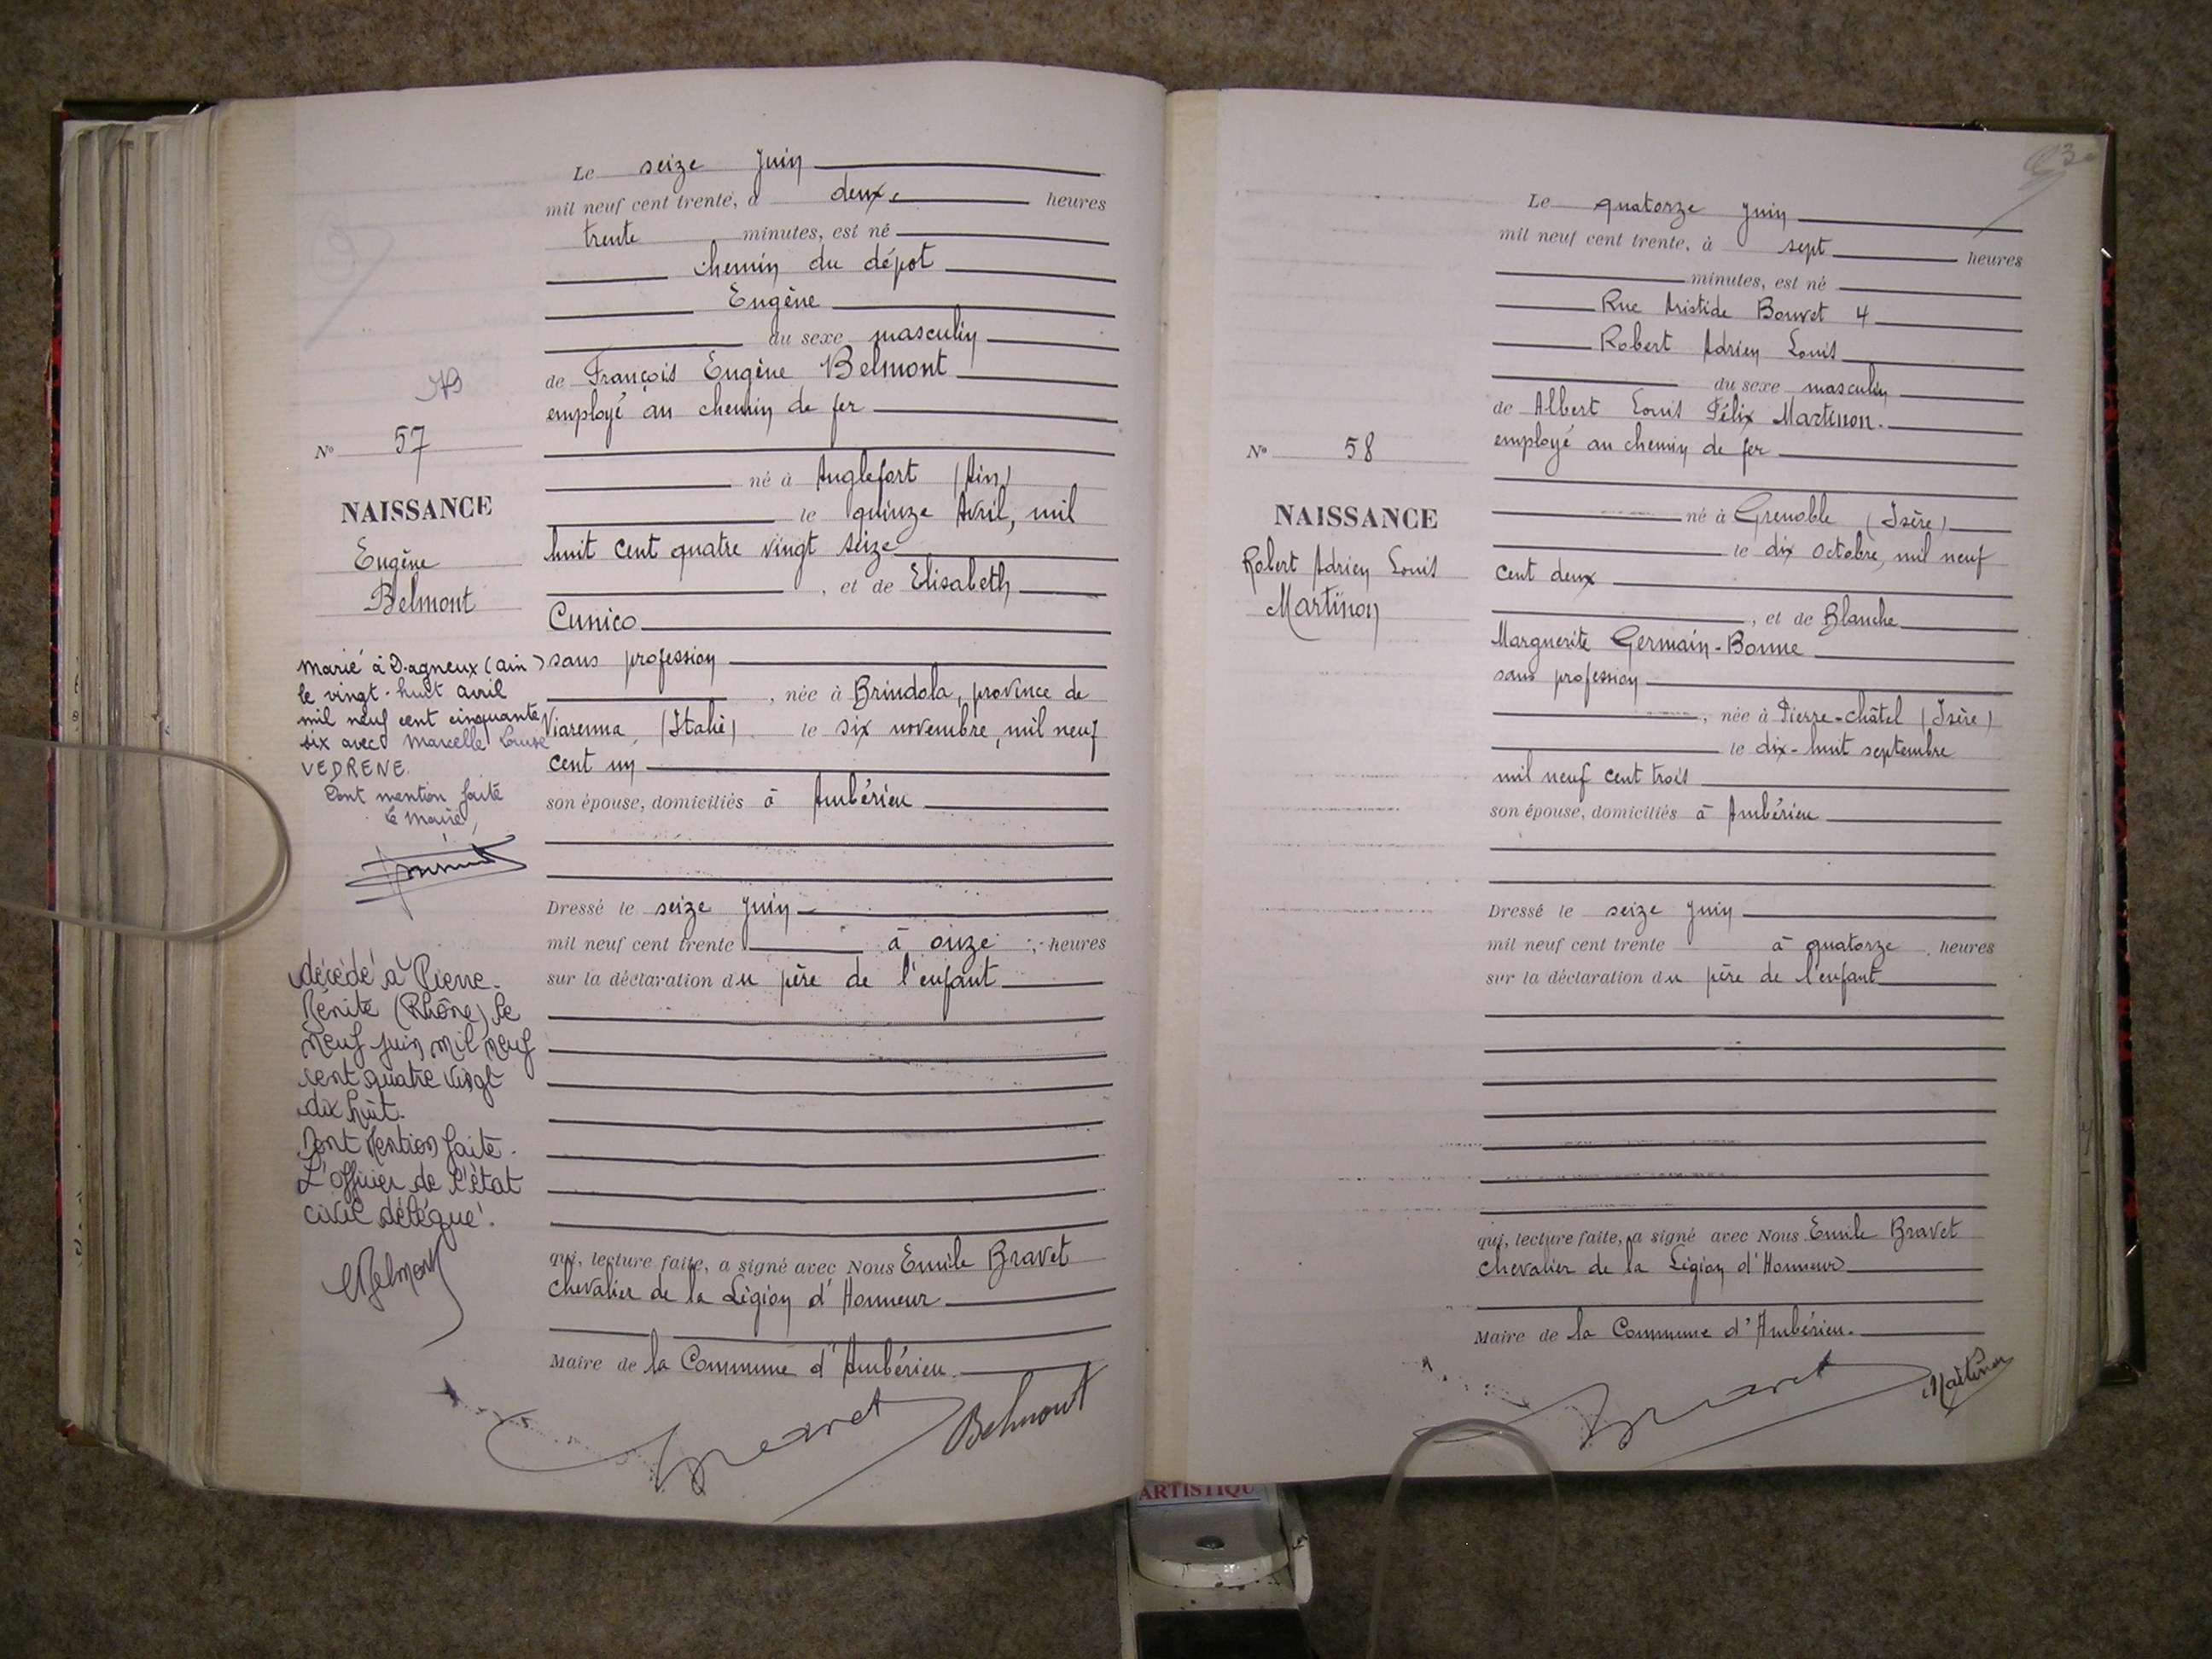 Le seize Juin
mil neuf cent trente, à deux heures
trente minutes, est né
chemin du dépot
Eugène
du sexe masculin
de François Eugène Belmont
employé au chemin de fer
né à Anglefort (Ain)
le quinze Avril, mil
huit cent quatre vingt seize
, et de Elisabeth
Cunico
sans profession
, née à Brindola, province de
Viarenna (Italie) le six novembre, mil neuf
cent un
son épouse, domiciliés à Ambérieu
Dressé le seize Juin
mil neuf cent trente à onze heures
sur la déclaration du père de l'enfant
qui, lecture faite, a signé avec Nous Emile Bravet
chevalier de la Légion d'Honneur
Maire de la Commune d'Ambérieu.
Bravet
Belmont
No 57
NAISSANCE
Eugène
Belmont
Marié à Dagneux (ain)
le vingt-huit avril
mil neuf cent cinquante
six avec Marcelle Louise
VEDRENE.
Dont mention faite
le Maire,
décédé à Pierre-
Bénite (Rhône) le
neuf juin mil neuf
cent quatre vingt
dix huit.
Dont Mention faite.
L'officier de l'état
civil délégué.
Belmont
3
Le quatorze Juin
mil neuf cent trente, à sept heures
minutes, est né
Rue Aristide Bouvet 4
Robert Adrien Louis
du sexe masculin
de Albert Louis Félix Martinon.
employé au chemin de fer
né à Grenoble (Isère)
le dix octobre, mil neuf
cent deux
, et de Blanche
Marguerite Germain-Bonne
sans profession
, née à Pierre-Châtel (Isère)
le dix-huit septembre
mil neuf cent trois
son épouse, domiciliés à Ambérieu
Dressé le seize Juin
mil neuf cent trente à quatorze heures
sur la déclaration du père de l'enfant
qui, lecture faite, a signé avec Nous Emile Bravet
chevalier de la Légion d'Honneur
Maire de la Commune d'Ambérieu.
Bravet
Martinon
No 58
NAISSANCE
Robert Adrien Louis
Martinon
ARTISTIQU